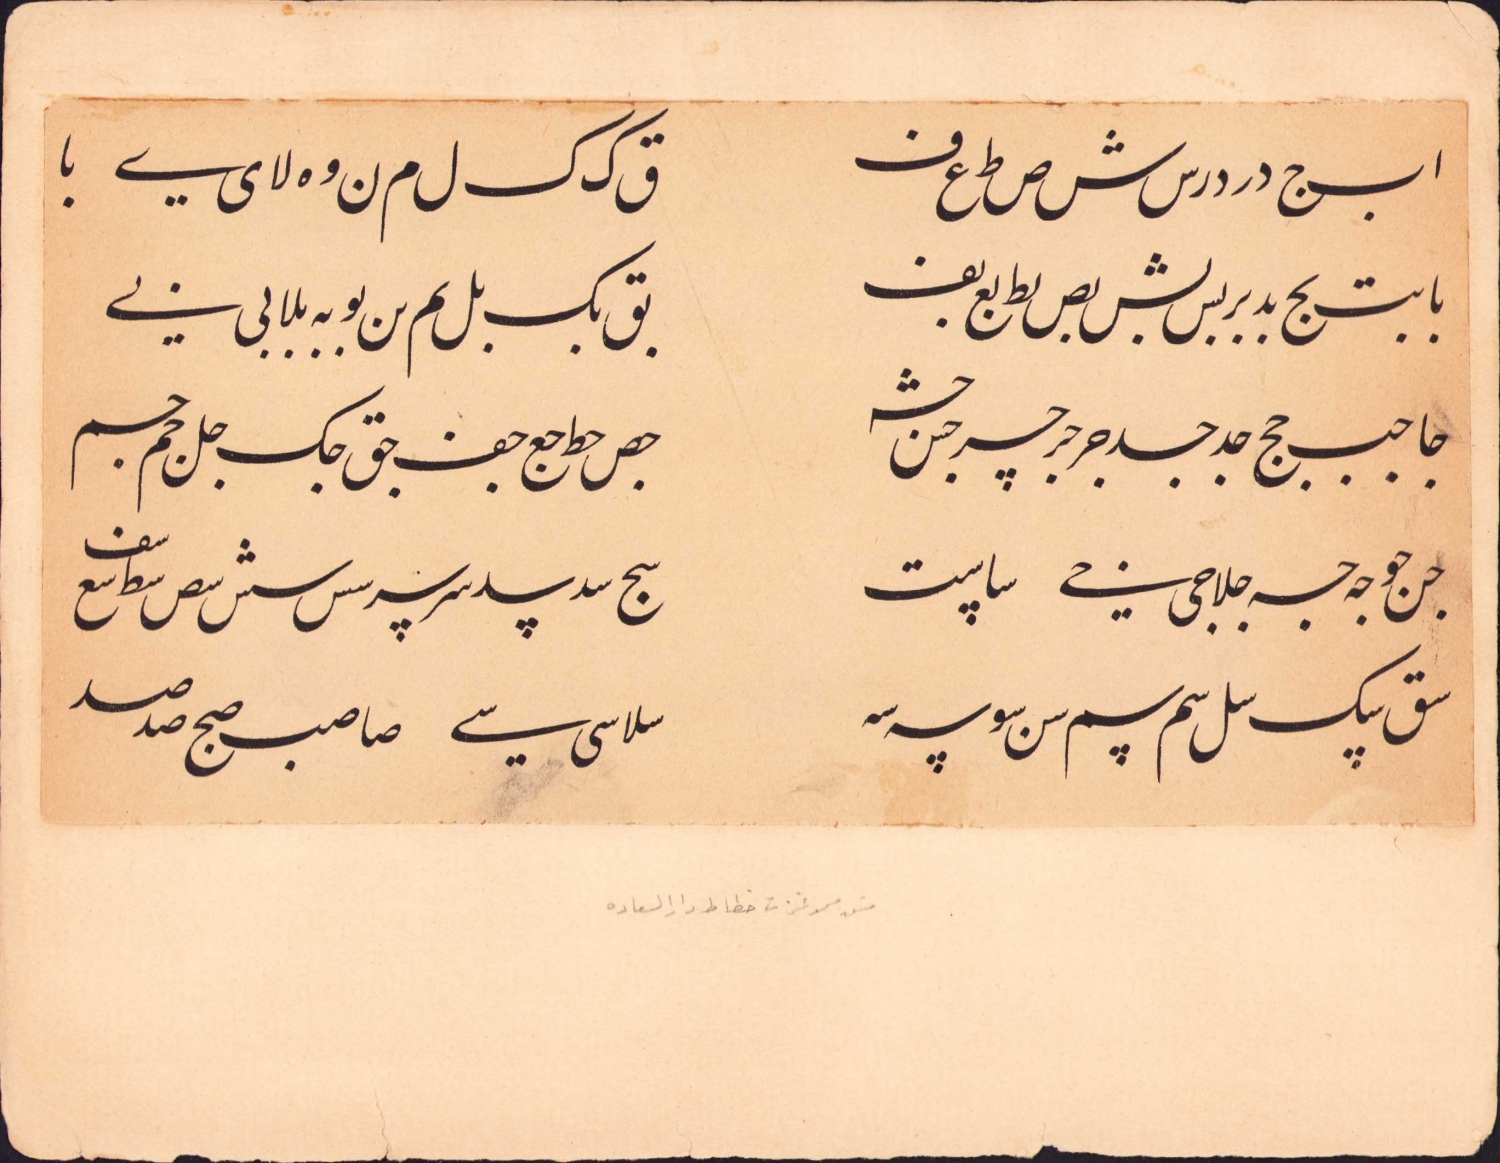 ا ب ج د ر د ر س ش ص ط ع ف ق ک ک ل م ن و ه لا ی ے با
با بت بج بد بر بس بش بص بط بع بف بق بک بل بم بن بو به بلا بی بے
جا جب جج جد جد جر جر جس جش جص جط جع جف جق جک جل جم جم
جن جو جه جه جلا جی جے سا ست سج سد سد سر سر سس سش سص سط سع سف
سق سک سل سم سم سن سو سه سه سلا سی سے صا صب صج صد صد
خطاط دار السعاده